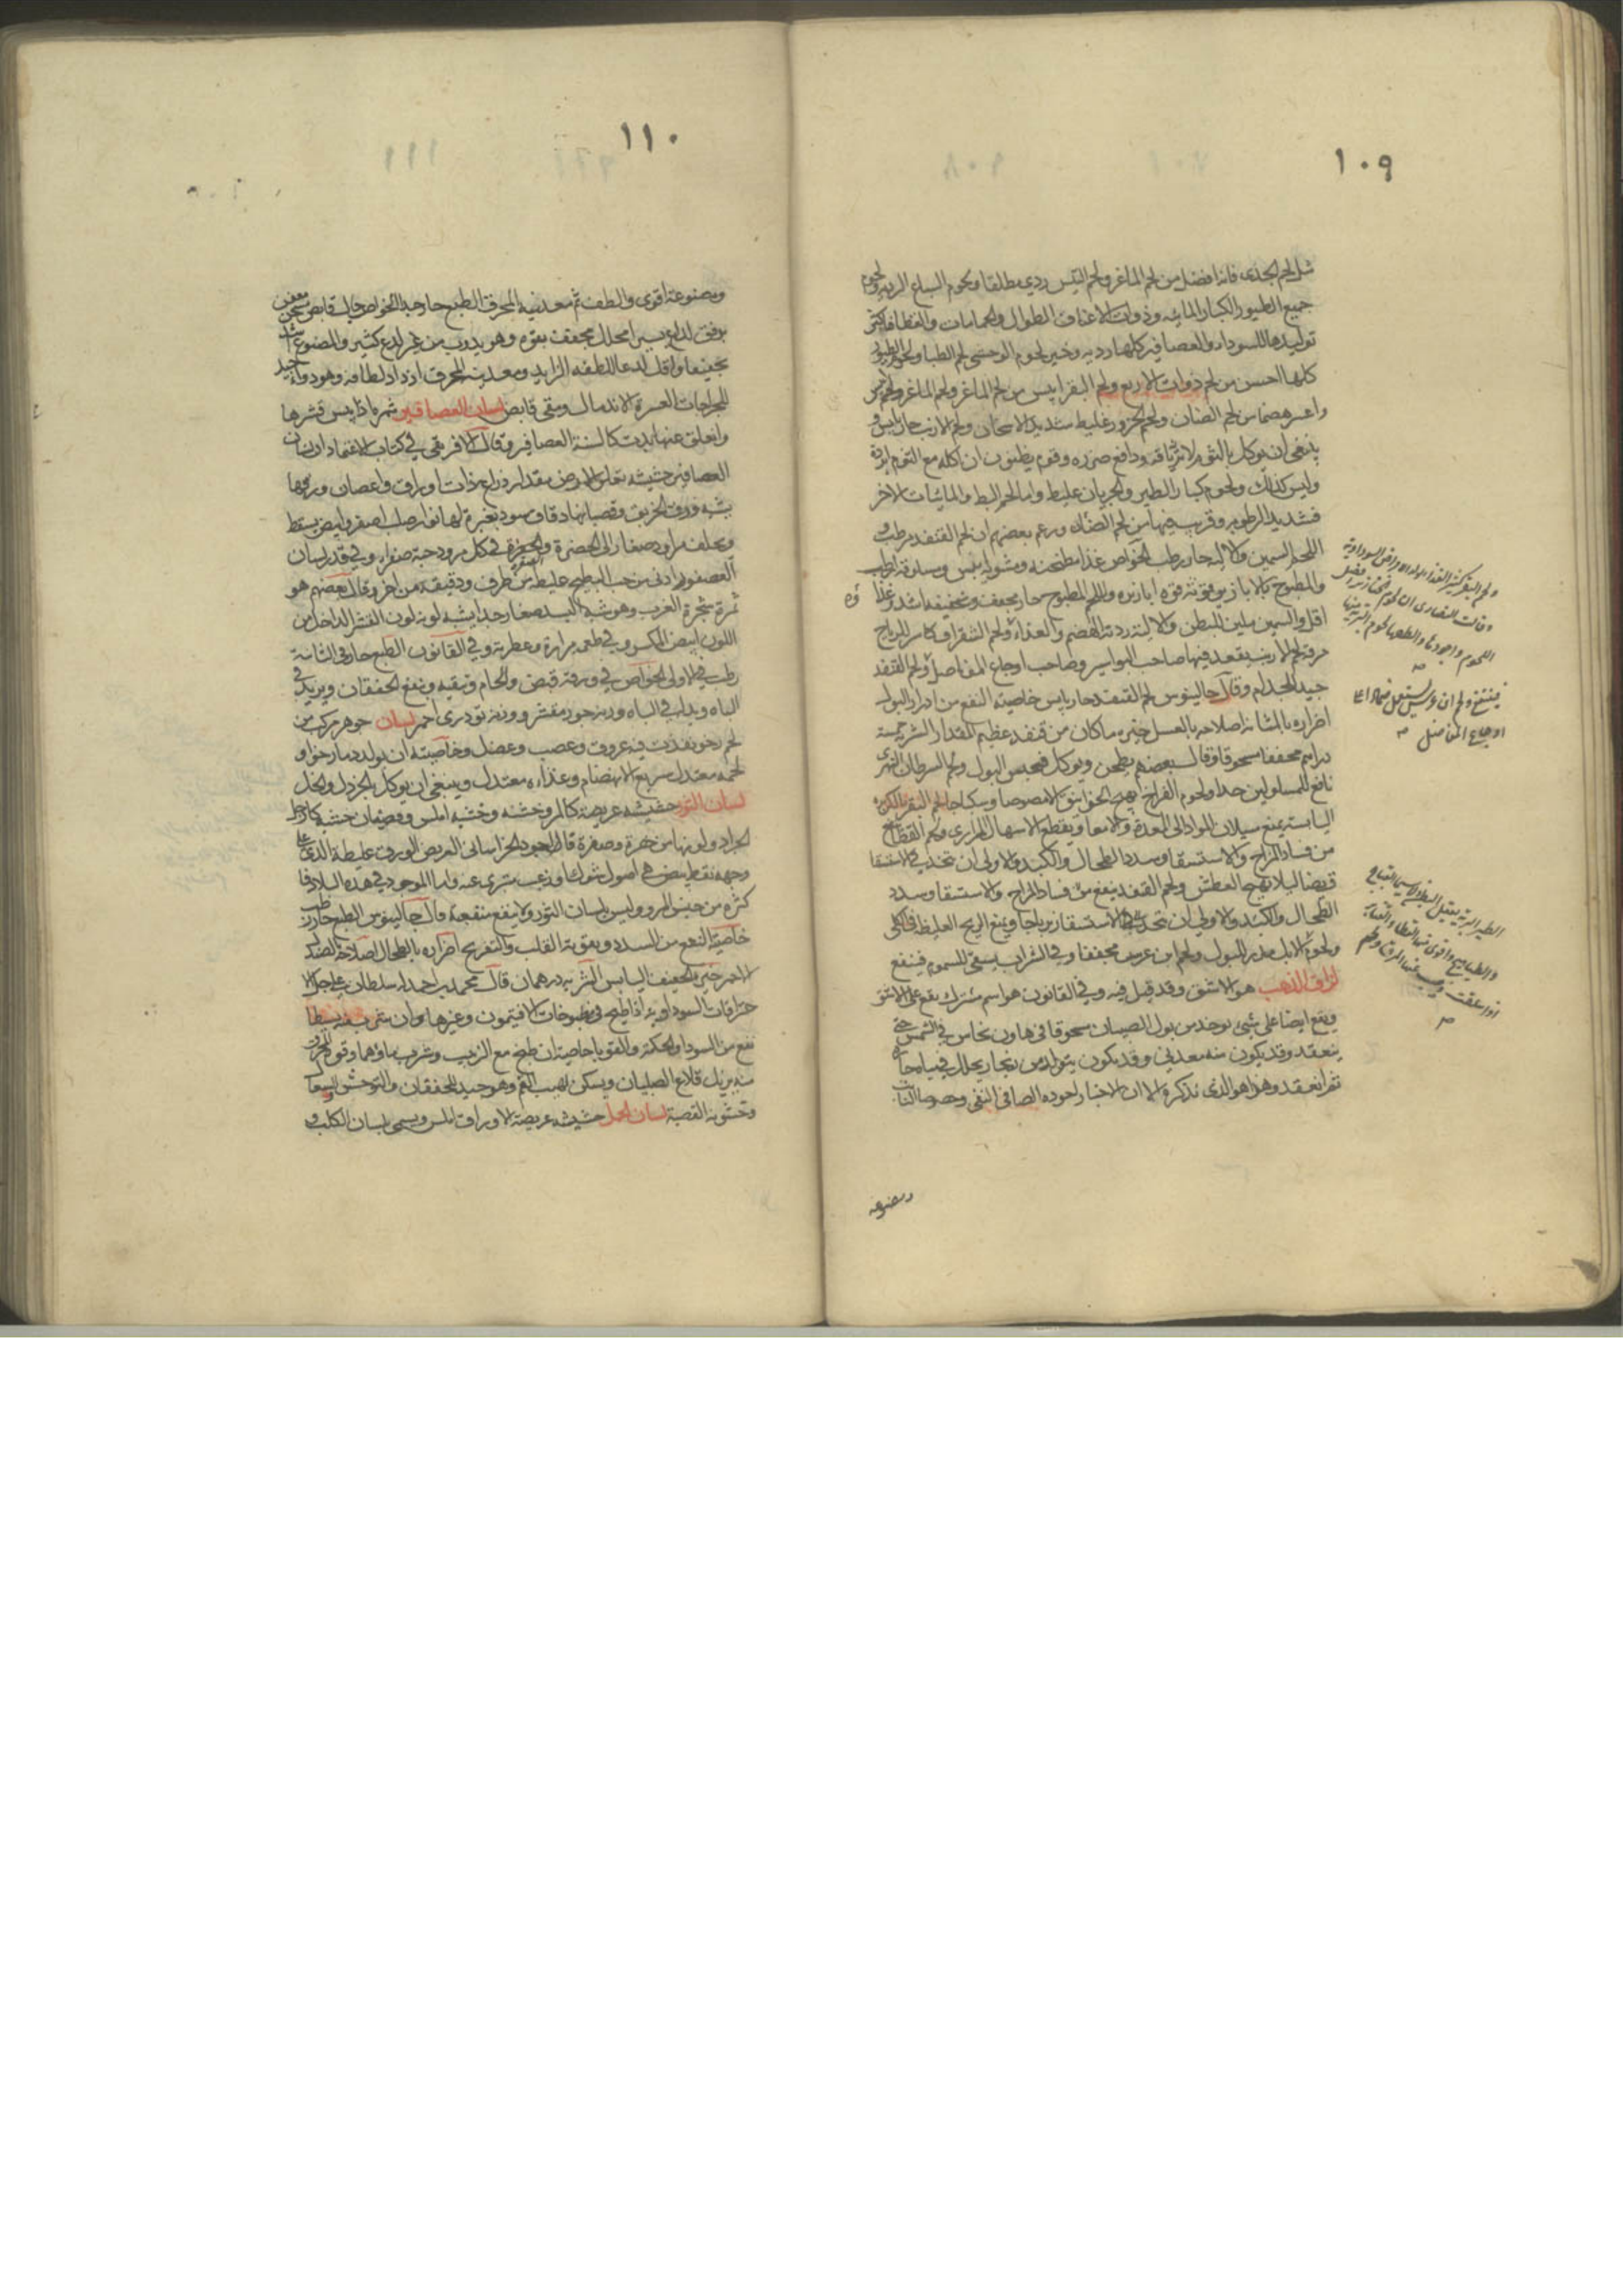 ١٠٩
مثل لحم الجدي فانه افضل من لحم الماعز ولحم التيس ردي مطلقا ولحوم السباع الرديه ولحوم
جميع الطيور الكبار المائيه وذوات الاعناق الطوال والحمامات والقطا فاكثر
توليدها للسوداء والعصافير كلها رديه وخير لحوم الوحشي لحم الظبا ولحوم الطيور
كلها احسن من لحم ذوات الاربع ولحم البقر ايبس من لحم الماعز ولحم الماعز
واعسر هضما من لحم الضان ولحم الجزور غليظ شديد الاسخان ولحم الارنب حار يابس
ينبغي ان يوكل بالثوم لانه ودافع ضرره وقوم يظنون ان اكله مع الثوم
وليس كذلك ولحوم كبار الطير غليظ واما لحم البط والمائيات الاخر
فشديد الرطوبه وقريب فيها من لحم الضان وزعم بعضهم ان لحم القنفد مرطب
اللحم السمين والاليه حار رطب الخواص غذا مطجنه ومشويه ايبس ومسلوقه ارطب
والمطبوخ بالابازير قوته قوه ابازيره واللحم المطبوخ حار مجفف وتخفيفه اشد وغذا
اقل والسمين ملين للبطن والاليه ردئة الهضم والغذاء ولحم الشقراق كاسر للرياح
مرقة لحم الارنب يقعد فيها صاحب البواسير وصاحب اوجاع المفاصل ولحم القنفد
جيد للجذام وقال جالينوس لحم القنفد حار يابس خاصيته النفع من ادرار البول
اضراره بالمثانه اصلاحه بالعسل خيره ما كان من قنفد عظيم المقدار الشربه خمسة
دراهم مجففا مسحوقا وقال بعضهم يطحن ويوكل فيحبس البول ولحم السرطان النهري
نافع للمسلولين جدا ولحوم الفراخ تهيج الخوانيق الا مصوصا وسكباجا لحم البقر بالكزبره
اليابسه يمنع سيلان المواد الى المعدة والامعا ويقطع الاسهال المراري ولحم القطا نافع
من فساد المزاج والاستسقا وسدد الطحال والكبد والاولى ان تتخذ في الاستسقا
قريضا لئلا يهيج العطش ولحم القنفد ينفع من فساد المزاج والاستسقا وسدد
الطحال والكبد والاولى ان تتخذ في الاستسقا زيرباجا ويمنع الريح الغليظه
ولحوم الابل مدر للبول ولحم ابن عرس مجففا وفي الشراب يسقى للسموم فينفع
لزاق الذهب هو الاشق وقد قيل فيه وفي القانون هو اسم مشترك يقع على الاشق
ويقع ايضا على شي يوخذ من بول الصبيان مسحوقا في هاون نحاس في الشمس حتى
ينعقد وقد يكون منه معدني وقد يكون يتولد من بخار يحلل في مياه
ثم انعقد وهذا هو الذي نذكره الا ان الاختيار لجوده الصافي النقي وخصوصا
ومصنوعه
ولحم البقر كثير الغذا يولد الامراض السوداويه
وقالت النصارى ان لحوم الخنازير افضل
اللحوم واجودها والطفها لحوم البريه منها
صح
فينفع ولحم الارنب يستعمل ضمادا على
اوجاع المفاصل صح
الطير البريه يعقل البطن لاسيما القنابر
والطياهيج واقوى منه القطا
صح
١١٠
ومصنوعه اقوى والطف ثم معدنيه المحرق الطبع حار جدا الخواص جال قابض معفن
برفق لذاع يسيرا محلل مجفف بقوه وهو يذوب من غير لذع كثير والمصنوع اشد
تجفيفا واقل لذعا للطفه الزايد ومعدنيه المحرق ازداد لطافه وهو دواء جيد
للجراحات العسرة الاندمال ومقي قابض لسان العصافير ثمره اذا يبس قشرها
وانعلق عنها بدت كالسنة العصافير وقال الافريقي في كتاب الاعتماد ان لسان
العصافير حشيشه تعلو الارض مقدار ذراع ذات اوراق واغصان ورقها
يشبه ورق الخربق وقصبانها دقاق سود يغبرة لها نوار صلب اصفر وابيض يسقط
ويخلف مراود صغار الى الخضرة والصفرة في كل مرود حبة صفراء وفي قدر لسان
العصفور وادنى من حب البطيخ غليظه من طرف ودقيقه من اخر وقال بعضهم هو
ثمرة شجرة الغرب وهو شبيه اليد صغار جدا يشبه لونه لون القشر الداخل من
اللون ابيض المكسر وفي طعمه مرارة وعطريه وفي القانون الطبع حار في الثانية
رطب في الاولى الخواص في ورقه قبض والحام وتنقيه وينفع الخفقان ويزيد في
الباه وبدله في الباه وزنه جوز مقشر ووزنه تودري احمر لسان جوهر مركب من
لحم رخو نفذت فيه عروق وعصب وعضل وخاصيته ان يولد دما رخوا و
لحمه معتدل سريع الانهضام وغذاءه معتدل وينبغي ان يوكل بالخردل والخل
لسان الثور حشيشه عريضة كالمرو خشنه وخشبه املس وقضبان خشنه كارجل
الجراد ولونها من خضرة وصفرة قال الجود الخراساني العريض الورق غليظة الذي على
وجهه نقط بيض هي اصول شوك او زغب متبري عنه واما الموجود في هذه البلاد
كثره من جنس المرو وليس بلسان الثور ولا ينفع منفعة قال جالينوس الطبع حار رطب
خاصيته النفع من السدد ويقوية القلب والتفريح اضراره بالطحال اصلاحه الصندل
الاحمر خيره الخفيف اليابس الشربه درهمان قال محمد بن احمد له سلطان على اجلا
حراقات السوداويه اذا طبخ في مطبوخات الافتيمون وغيرها وان شرب مفردا
نفع من السودا والحكة والقوبا خاصيه ان طبخ مع الزبيب وشرب ماؤهما وقوى المحرق
منه يزيل قلاع الصبيان ويسكن لهيب الفم وهو جيد للخفقان والتوحش والسعال
وخشونه القصبة لسان الحمل حشيشه عريضة الاوراق املس ويسمى لسان الكلب و